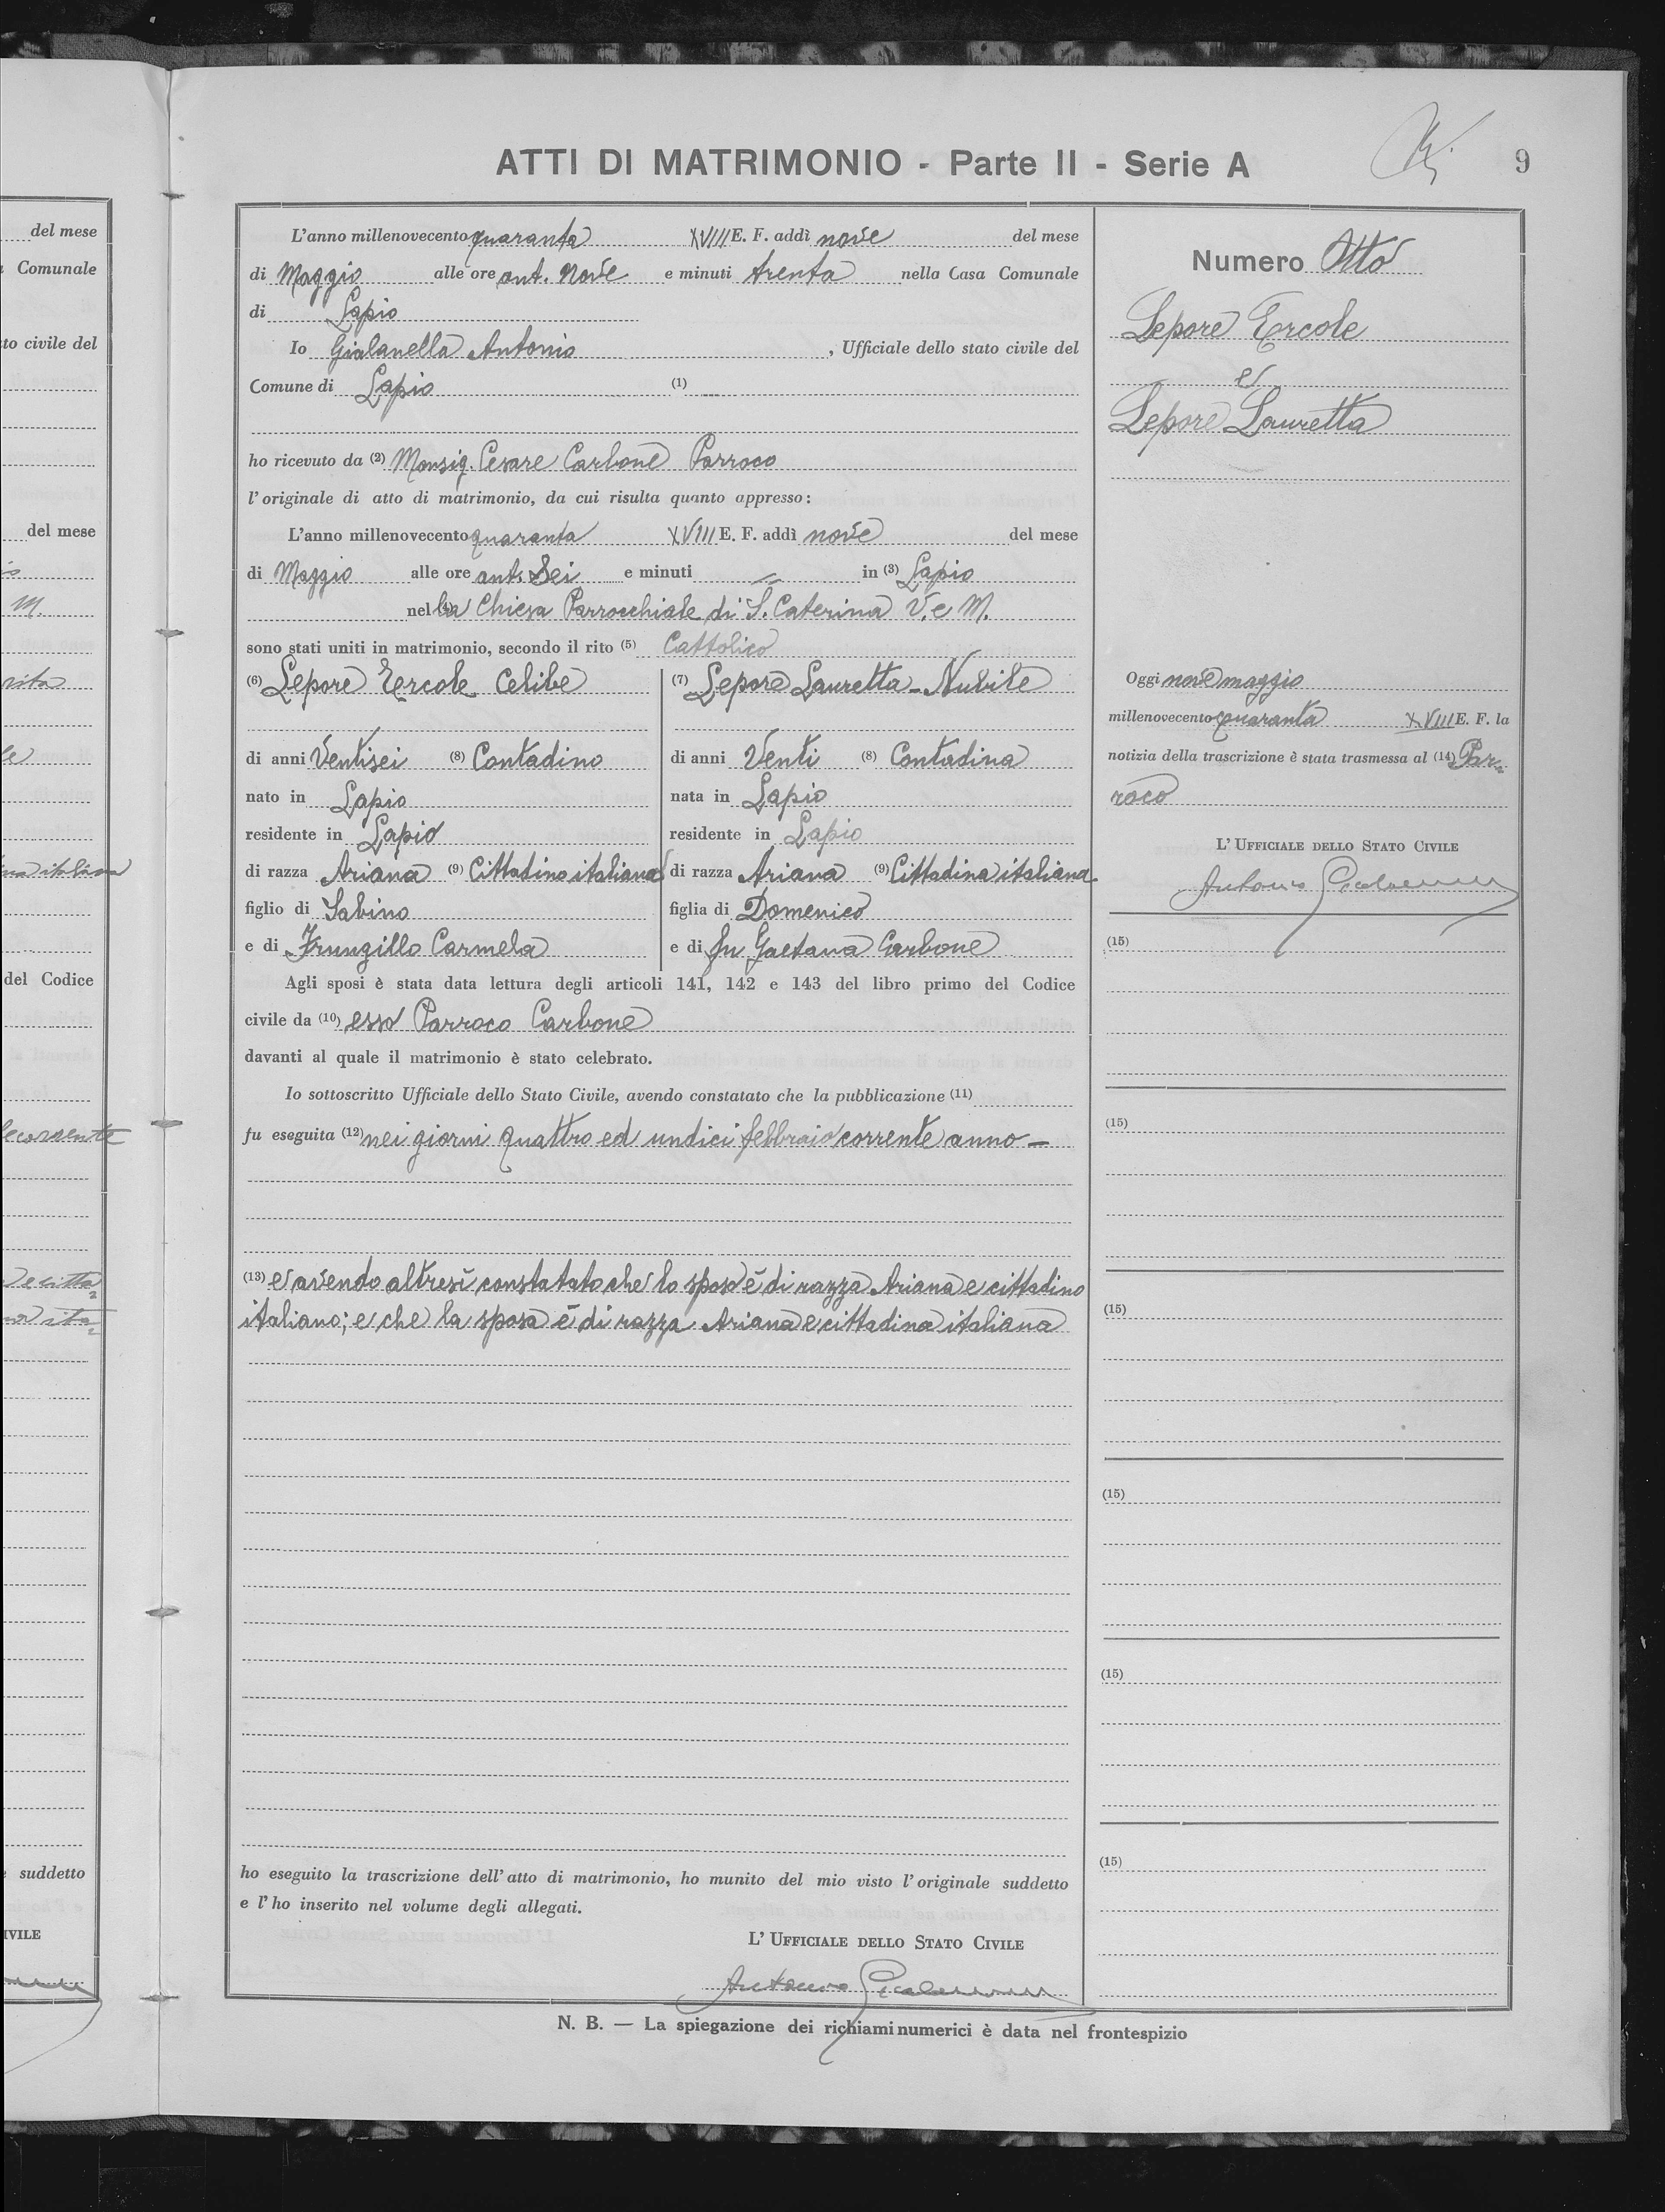 ATTI DI MATRIMONIO - Parte II - Serie A
9
L'anno millenovecento quaranta XVIII E. F. addì nove del mese
di Maggio alle ore ant. Nove e minuti trenta nella Casa Comunale
di Lapio
Io Gialanella Antonio, Ufficiale dello stato civile del
Comune di Lapio (1)
ho ricevuto da (2) Monsig. Cesare Carbone Parroco
l'originale di atto di matrimonio, da cui risulta quanto appresso:
L'anno millenovecento quaranta XVIII E. F. addì nove del mese
di Maggio alle ore ant. Sei e minuti = in (3) Lapio
nella Chiesa Parrocchiale di S. Caterina V. e M.
sono stati uniti in matrimonio, secondo il rito (5) Cattolico
(6) Lepore Ercole Celibe
di anni Ventisei (8) Contadino
nato in Lapio
residente in Lapio
di razza Ariana (9) Cittadino italiano
figlio di Sabino
e di Frungillo Carmela
(7) Lepore Lauretta - Nubile
di anni Venti (8) Contadina
nata in Lapio
residente in Lapio
di razza Ariana (9) Cittadina italiana
figlia di Domenico
e di fu Gaetana Carbone
Agli sposi è stata data lettura degli articoli 141, 142 e 143 del libro primo del Codice
civile da (10) esso Parroco Carbone
davanti al quale il matrimonio è stato celebrato.
Io sottoscritto Ufficiale dello Stato Civile, avendo constatato che la pubblicazione (11)
fu eseguita (12) nei giorni quattro ed undici febbraio corrente anno -
(13) e avendo altresì constatato che lo sposo è di razza Ariana e cittadino
italiano; e che la sposa è di razza Ariana e cittadina italiana
ho eseguito la trascrizione dell'atto di matrimonio, ho munito del mio visto l'originale suddetto
e l'ho inserito nel volume degli allegati.
L'UFFICIALE DELLO STATO CIVILE
Antonio Gialanella
Numero Otto
Lepore Ercole
e
Lepore Lauretta
Oggi nove maggio
millenovecento quaranta XVIII E. F. la
notizia della trascrizione è stata trasmessa al (14) Par=
roco
L'UFFICIALE DELLO STATO CIVILE
Antonio Gialanella
(15)
(15)
(15)
(15)
(15)
(15)
N. B. — La spiegazione dei richiami numerici è data nel frontespizio
del mese
Comunale
to civile del
del mese
M.
del Codice
suddetto
IVILE